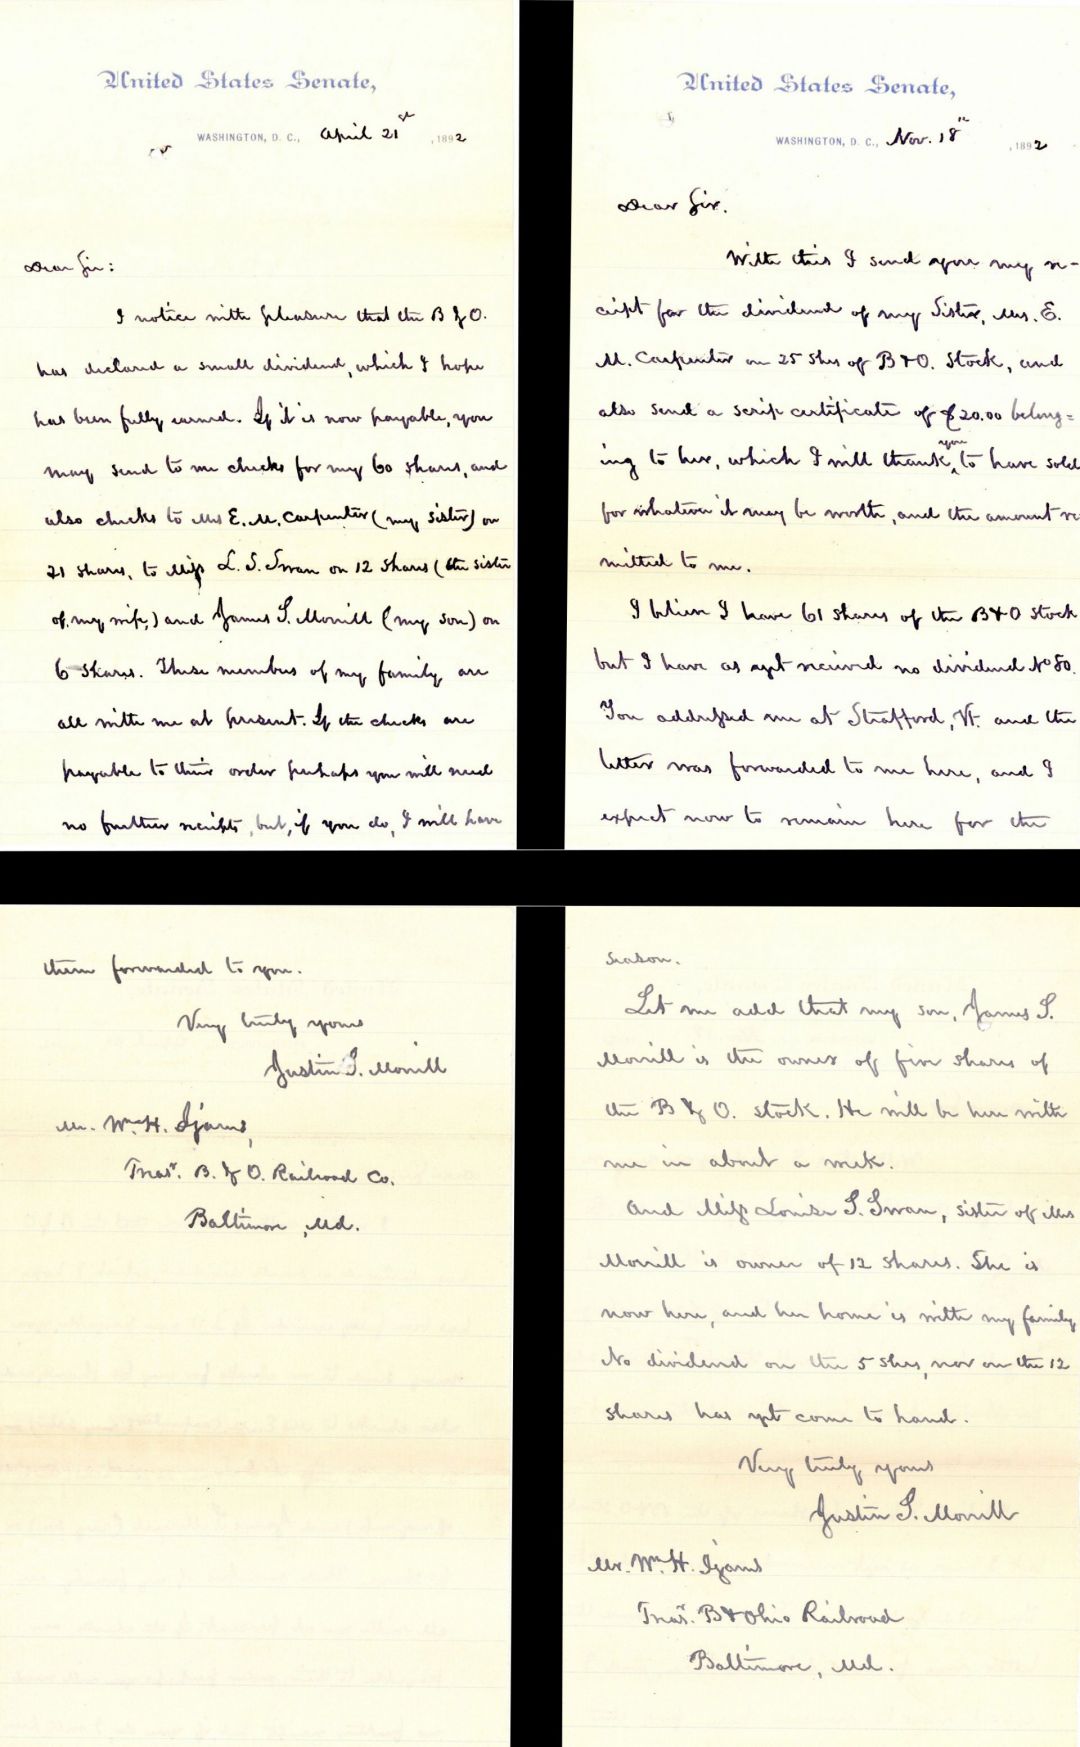 United States Senate,
WASHINGTON, D. C., April 21st, 1892
Dear Sir:
I notice with pleasure that the B & O.
has declared a small dividend, which I hope
has been fully earned. If it is now payable, you
may send to me checks for my 60 shares, and
also checks to Mrs E. M. Carpenter (my sister) on
21 shares, to Miss L. S. Swan on 12 shares (the sister
of my wife,) and James S. Morrill (my son) on
6 shares. These members of my family are
all with me at present. If the checks are
payable to their order perhaps you will need
no further receipts, but, if you do, I will have
them forwarded to you.
Very truly yours
Justin S. Morrill
Mr. Wm H. Ijams,
Treasr. B. & O. Railroad Co.
Baltimore, Md.
United States Senate,
WASHINGTON, D. C., Nov. 18th, 1892
Dear Sir.
With this I send you my re-
ceipt for the dividend of my Sister, Mrs. E.
M. Carpenter on 25 shs of B & O. Stock, and
also send a scrip certificate of $20.00 belong=
ing to her, which I will thank you to have sold
for whatever it may be worth, and the amount re
mitted to me.
I believe I have 61 shares of the B & O Stock
but I have as yet received no dividend No 80.
You addressed me at Strafford, Vt. and the
letter was forwarded to me here, and I
expect now to remain here for the
season.
Let me add that my son, James S.
Morrill is the owner of five shares of
the B & O. stock. He will be here with
me in about a week.
And Miss Louise S. Swan, sister of Mrs
Morrill is owner of 12 shares. She is
now here, and her home is with my family
No dividend on the 5 shs, nor on the 12
shares has yet come to hand.
Very truly yours
Justin S. Morrill
Mr. Wm H. Ijams
Treasr. B & Ohio Railroad
Baltimore, Md.